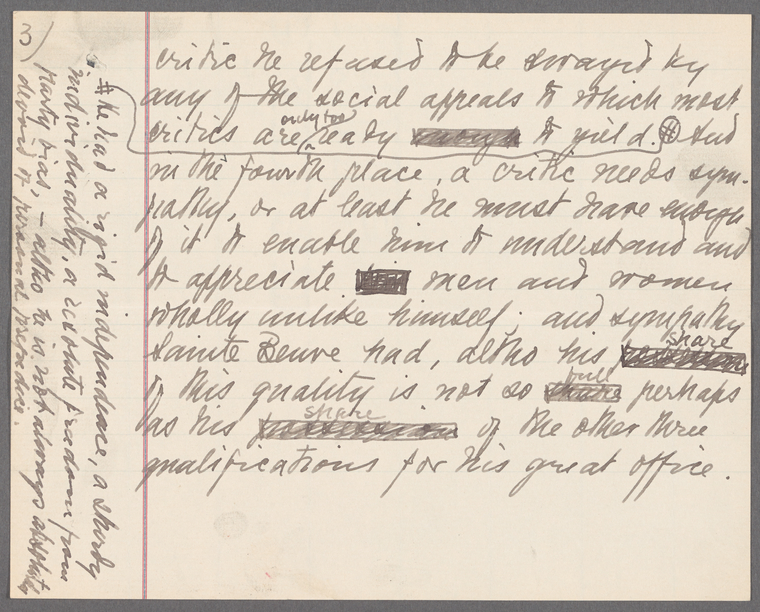 3)
critic he refused to be swayed by
any of the social appeals to which most
critics are only too ready enough to yield. # And
in the fourth place, a critic needs sym-
pathy, or at least he must have enough
of it to enable him to understand and
to appreciate men and women
wholly unlike himself; and sympathy
Sainte Beuve had, altho his share
of this quality is not so full perhaps
as his possession share of the other three
qualifications for his great office.
# He had a rigid independence, a sturdy
individuality, a resolute freedom from
party bias, – altho he is not always absolutely
devoid of personal prejudice.